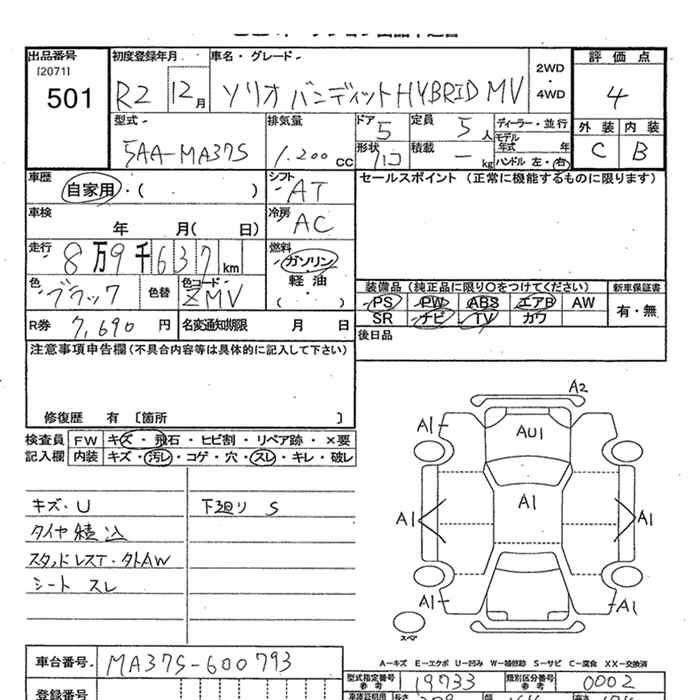 出品番号 初度登録年月 車名・グレード
[2071]
501
R2 12月 ソリオ バンディット HYBRID MV
2WD
・
4WD
評価点
4
型式 排気量 ドア 定員 ディーラー・並行
5AA-MA37S 1.200 cc 5 5人
モデル年式 年
形状 積載 ハンドル 左・右
ハコ ー kg
外装 内装
C B
車歴 シフト セールスポイント (正常に機能するものに限ります)
自家用・( ) AT
車検 冷房
年 月( 日) AC
走行 燃料
8万9千637km ガソリン・軽油
・( )
色 色替 色コード
ブラック ZMV
装備品 (純正品に限り○をつけてください) 新車保証書
PS PW ABS エアB AW 有・無
SR ナビ TV カワ
R券 7,690円 名変通知期限 月 日
後日品
注意事項申告欄 (不具合内容等は具体的に記入して下さい)
修復歴 有 〔箇所 〕
検査員 FW キズ・飛石・ヒビ割・リペア跡・×要
記入欄 内装 キズ・汚レ・コゲ・穴・スレ・キレ・破レ
キズ・U 下廻り S
タイヤ積込
スタッドレスT・タトAW
シート スレ
A2
A1
AU1
A1
A1
A1
A1
A1
スペア
A-キズ E-エクボ U-凹み W-補修跡 S-サビ C-腐食 XX-交換済
車台番号 MA37S-600793
型式指定番号 参考 19733 類別区分番号 参考 0002
登録番号